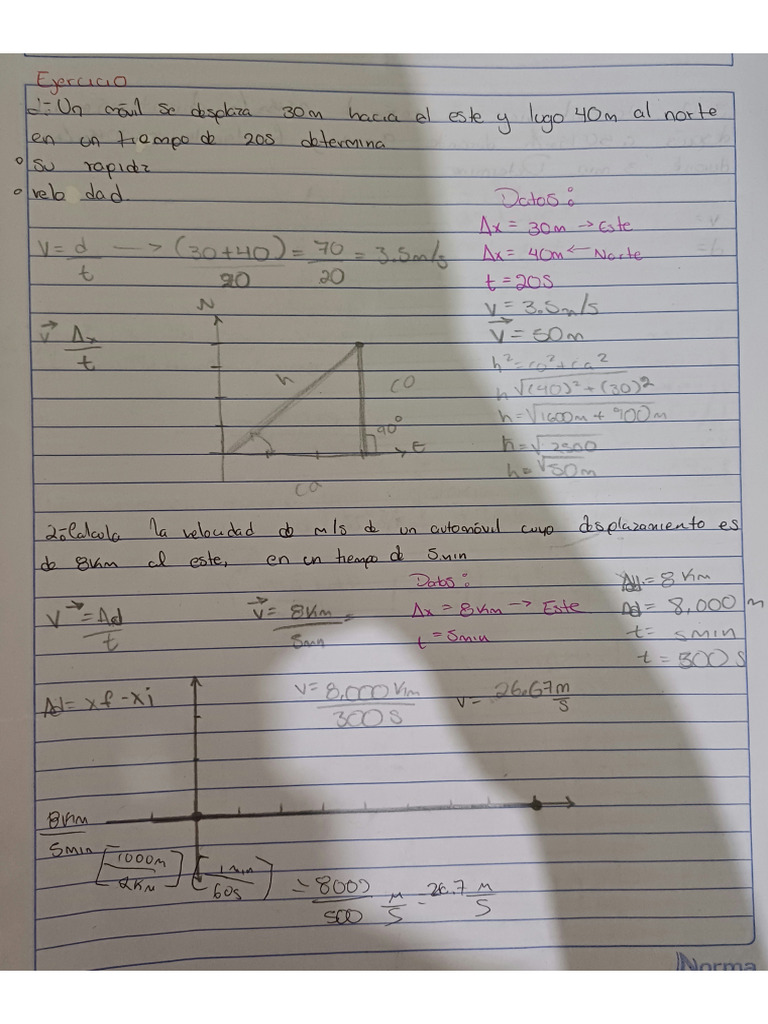 Ejercicio
1:- Un móvil se desplaza 30m hacia el este y lugo 40m al norte
en un tiempo de 20s determina
° su rapidez
° velo dad.
Datos:
Δx = 30m → Este
Δx = 40m ← Norte
t = 20s
V = 3.5m/s
V⃗ = 50m
V = d/t → (30+40)/20 = 70/20 = 3.5m/s
V⃗ Δx/t
N
h
CO
90°
E
Ca
h² = co² + ca²
h √(40)² + (30)²
h = √1600m + 900m
h = √2500
h = √50m
2:- Calcula la velocidad de m/s de un automóvil cuyo desplazamiento es
de 8Km al este, en un tiempo de 5min
Datos:
Δx = 8Km → Este
t = 5min
Δd = 8Km
Δd = 8,000 m
t = 5min
t = 300s
V⃗ = Δd/t
V⃗ = 8Km/5min =
Δd = xf - xi
V = 8,000Km/300s
V = 26.67m/s
8Km/5min [1000m/1Km] [1min/60s] = 8000/500 m/s = 26.7 m/s
Norma